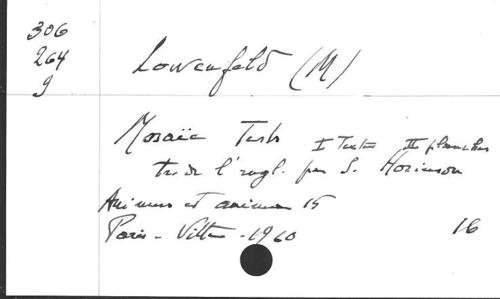 306
264
9
Lowenfeld (M)
Mosaïc Tests I Textes II planches
tr. de l'angl. par S. Horinson
Animus et anima 15
Paris - Vitte - 1960
16